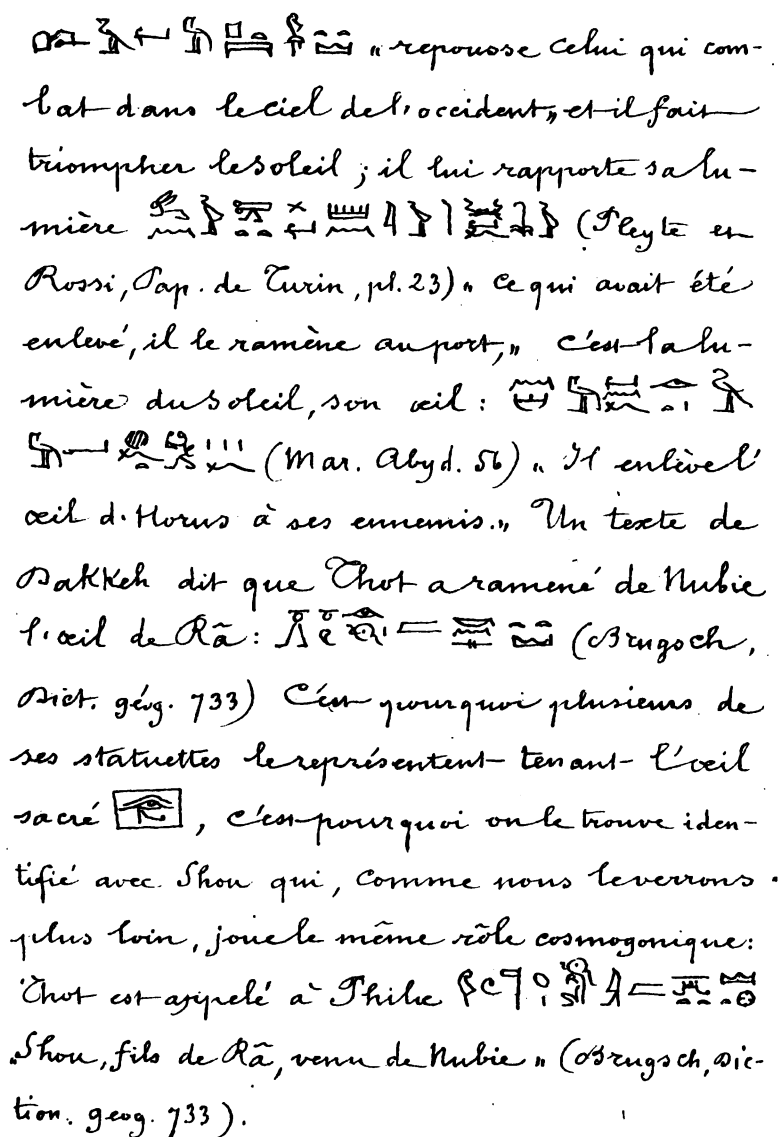 „ repousse celui qui com-
bat dans le ciel de l'occident,, et il fait
triompher le Soleil ; il lui rapporte sa lu-
mière (Pleyte et
Rossi, Pap. de Turin, pl. 23) „ Ce qui avait été
enlevé, il le ramène au port,„ C'est la lu-
mière du Soleil, son œil :
(Mar. Abyd. 56) „ Il enlève l'
œil d'Horus à ses ennemis.„ Un texte de
Dakkeh dit que Thot a ramené de Nubie
l'œil de Râ : (Brugsch,
Dict. géog. 733) C'est pourquoi plusieurs de
ses statuettes le représentent tenant l'œil
sacré , c'est pourquoi on le trouve iden-
tifié avec Shou qui, comme nous le verrons
plus loin, joue le même rôle cosmogonique :
Thot est appelé à Philæ
„Shou, fils de Râ, venu de Nubie „ (Brugsch, Dic-
tion. geog. 733).